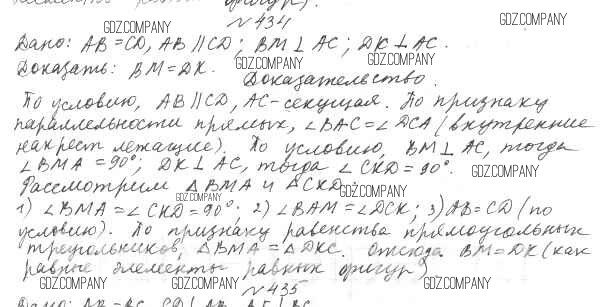 GDZ.COMPANY
№434
GDZ.COMPANY
Дано: AB=CD, AB∥CD; BM⊥AC; DK⊥AC.
GDZ.COMPANY GDZ.COMPANY
Доказать: BM=DK.
Доказательство.
По условию, AB∥CD, AC-секущая. По признаку
параллельности прямых, ∠BAC=∠DCA (внутренние
накрест лежащие). По условию, BM⊥AC, тогда
∠BMA=90°; DK⊥AC, тогда ∠CKD=90°.
Рассмотрим △BMA и △CKD
GDZ.COMPANY GDZ.COMPANY
1) ∠BMA=∠CKD=90°; 2) ∠BAM=∠DCK; 3) AB=CD (по
условию). По признаку равенства прямоугольных
треугольников, △BMA=△DKC. Отсюда BM=DK (как
равные элементы равных фигур)
GDZ.COMPANY GDZ.COMPANY GDZ.COMPANY
№435